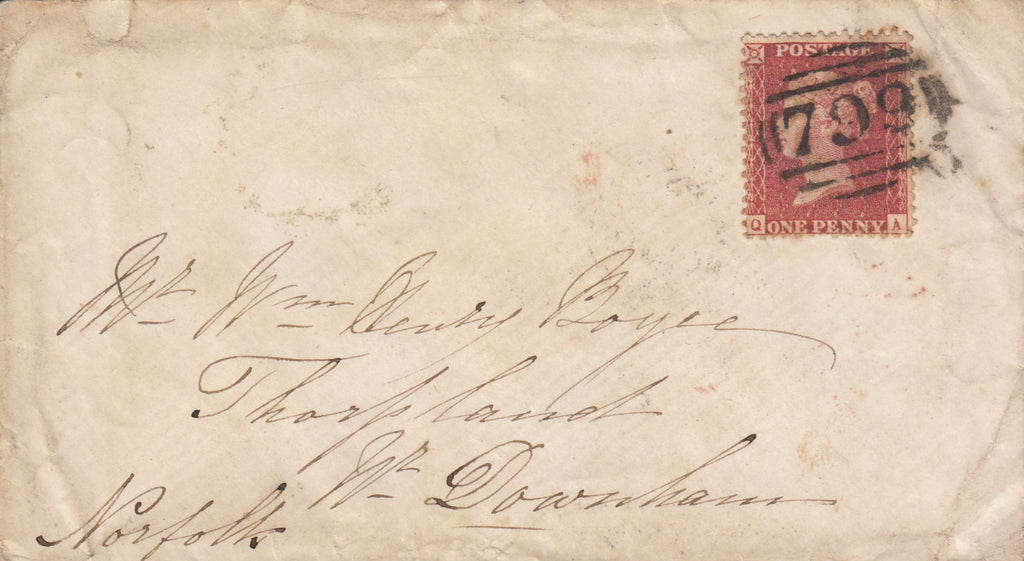 POSTAGE
799
Q ONE PENNY A
Mr Wm Henry Boyce
Thorpland
Nr Downham
Norfolk